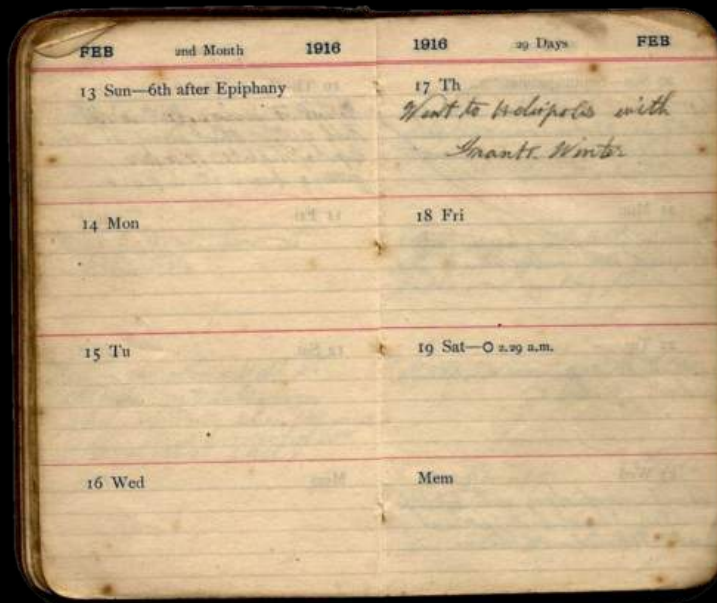 FEB 2nd Month 1916
13 Sun—6th after Epiphany
14 Mon
15 Tu
16 Wed
1916 29 Days FEB
17 Th
Went to Heliopolis with
Winter
18 Fri
19 Sat—O 2.29 a.m.
Mem